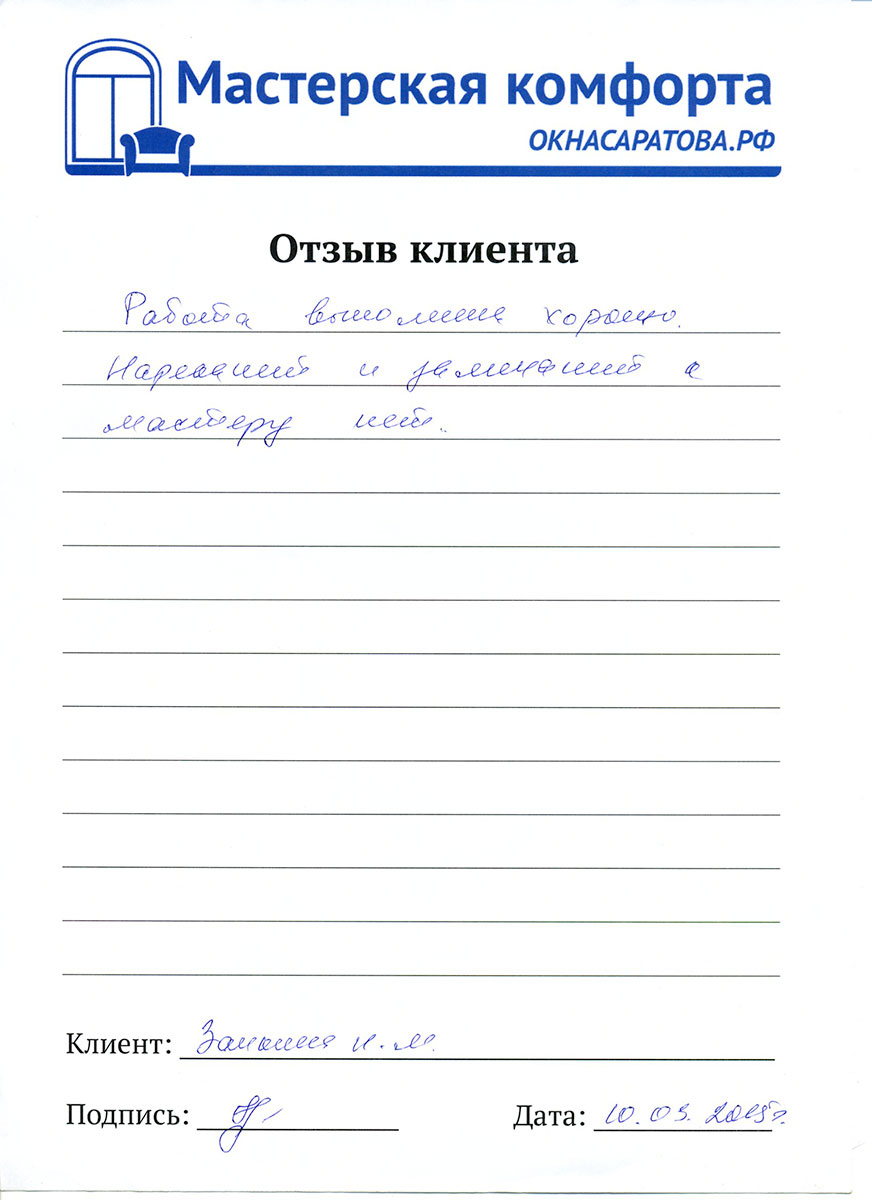 Мастерская комфорта
ОКНАСАРАТОВА.РФ
Отзыв клиента
Работа выполнена хорошо.
Нареканий и замечаний к
мастеру нет.
Клиент: И. М.
Подпись:
Дата: 10. 03. 2015г.